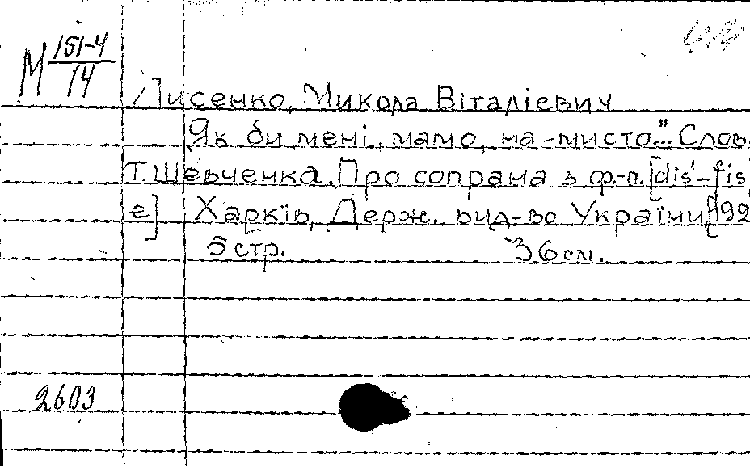 М 151-4/14
Лисенко, Микола Віталієвич
Як би мені, мамо, на-мисто..." Слов.
Т. Шевченка. Про сопрана з ф-п. [dis'-fis
e] Харків, Держ. вид-во України, [192
5 стр. 36 см.
2603